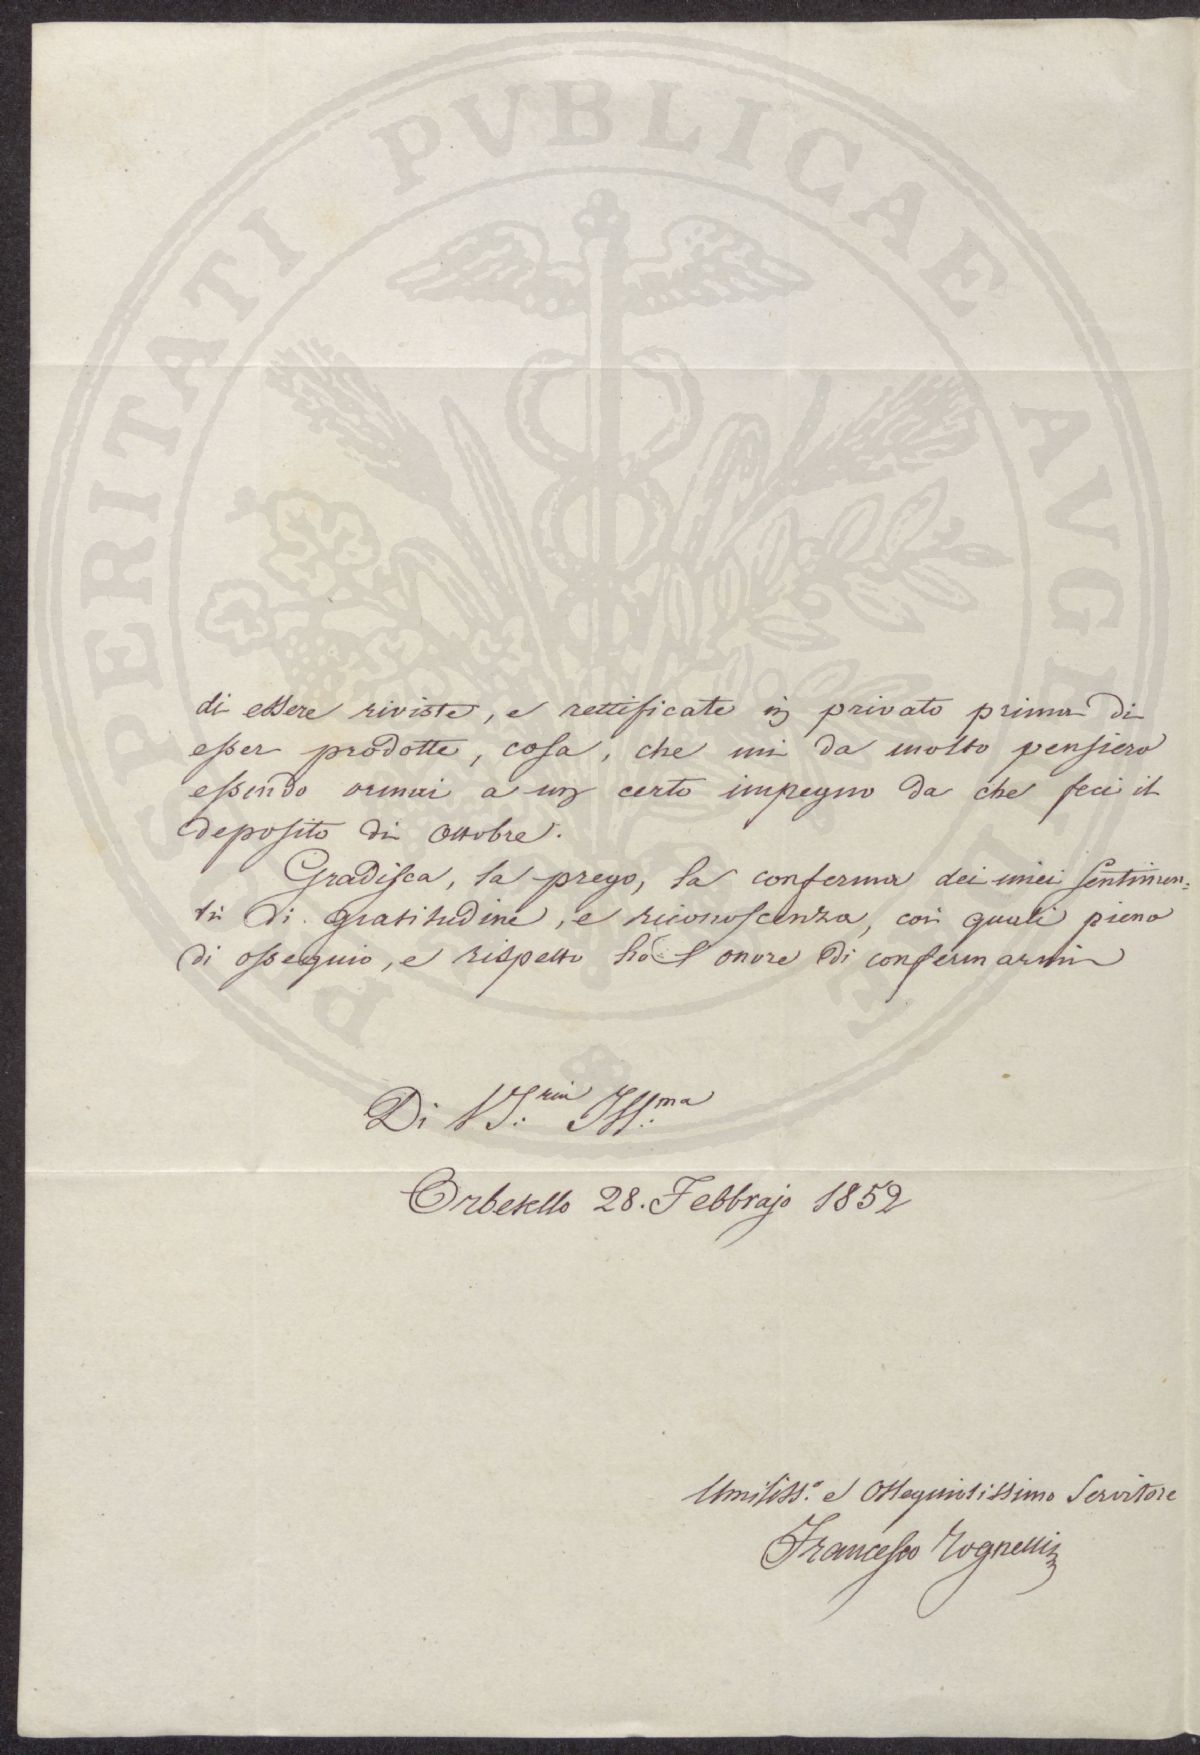 PROSPERITATI PVBLICAE AVGENDAE
di essere riviste, e rettificate in privato prima di
esser prodotte, cosa, che mi da molto pensiero
essendo ormai a un certo impegno da che feci il
deposito di Ottobre.
Gradisca, la prego, la conferma dei miei sentimen=
ti di gratitudine, e riconoscenza, coi quali pieno
di ossequio, e rispetto hò l'onore di confermarmi
Di VS.ria Ill.ma
Orbetello 28. Febbrajo 1852
Umiliss.o e Ossequiosissimo Servitore
Francesco